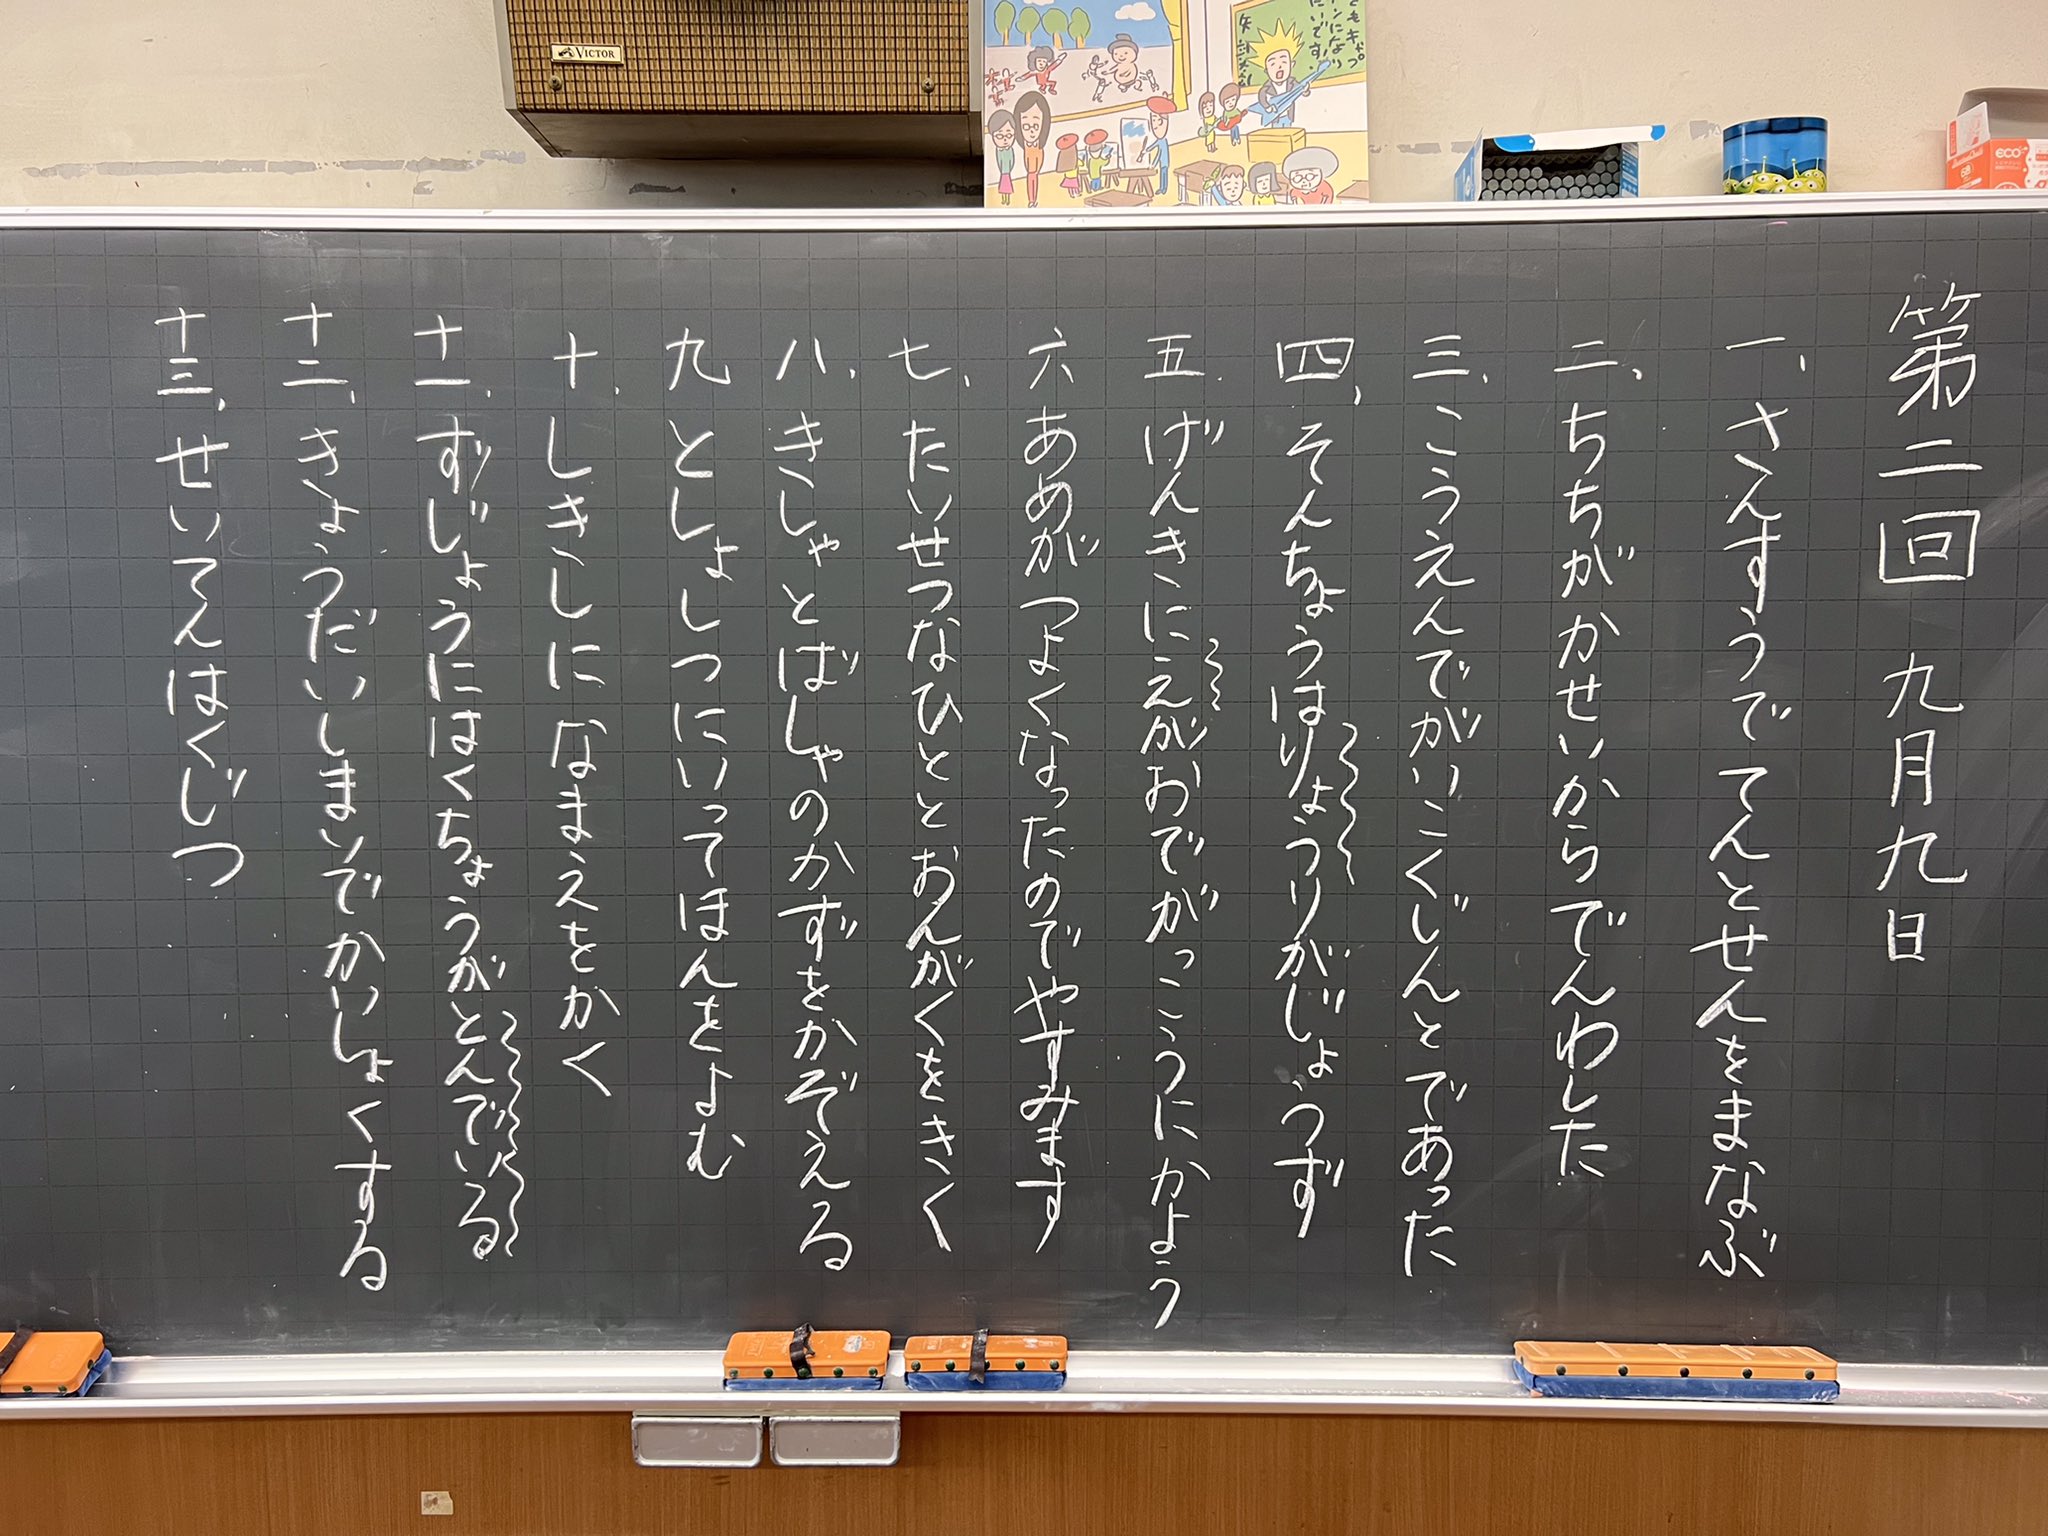 VICTOR
eco
第二回 九月九日
一、さんすうで てんとせんをまなぶ
二、ちちがかせいからでんわした
三、こうえんでがいこくじんとであった
四、そんちょうはりょうりがじょうず
五、げんきにえがおでがっこうにかよう
六 あめがつよくなったのでやすみます
七、たいせつなひととおんがくをきく
八、きしゃとばしゃのかずをかぞえる
九 としょしつにいってほんをよむ
十、しきしになまえをかく
十一、ずじょうにはくちょうがとんでいる
十二、きょうだいしまいでかいしょくする
十三、せいてんはくじつ